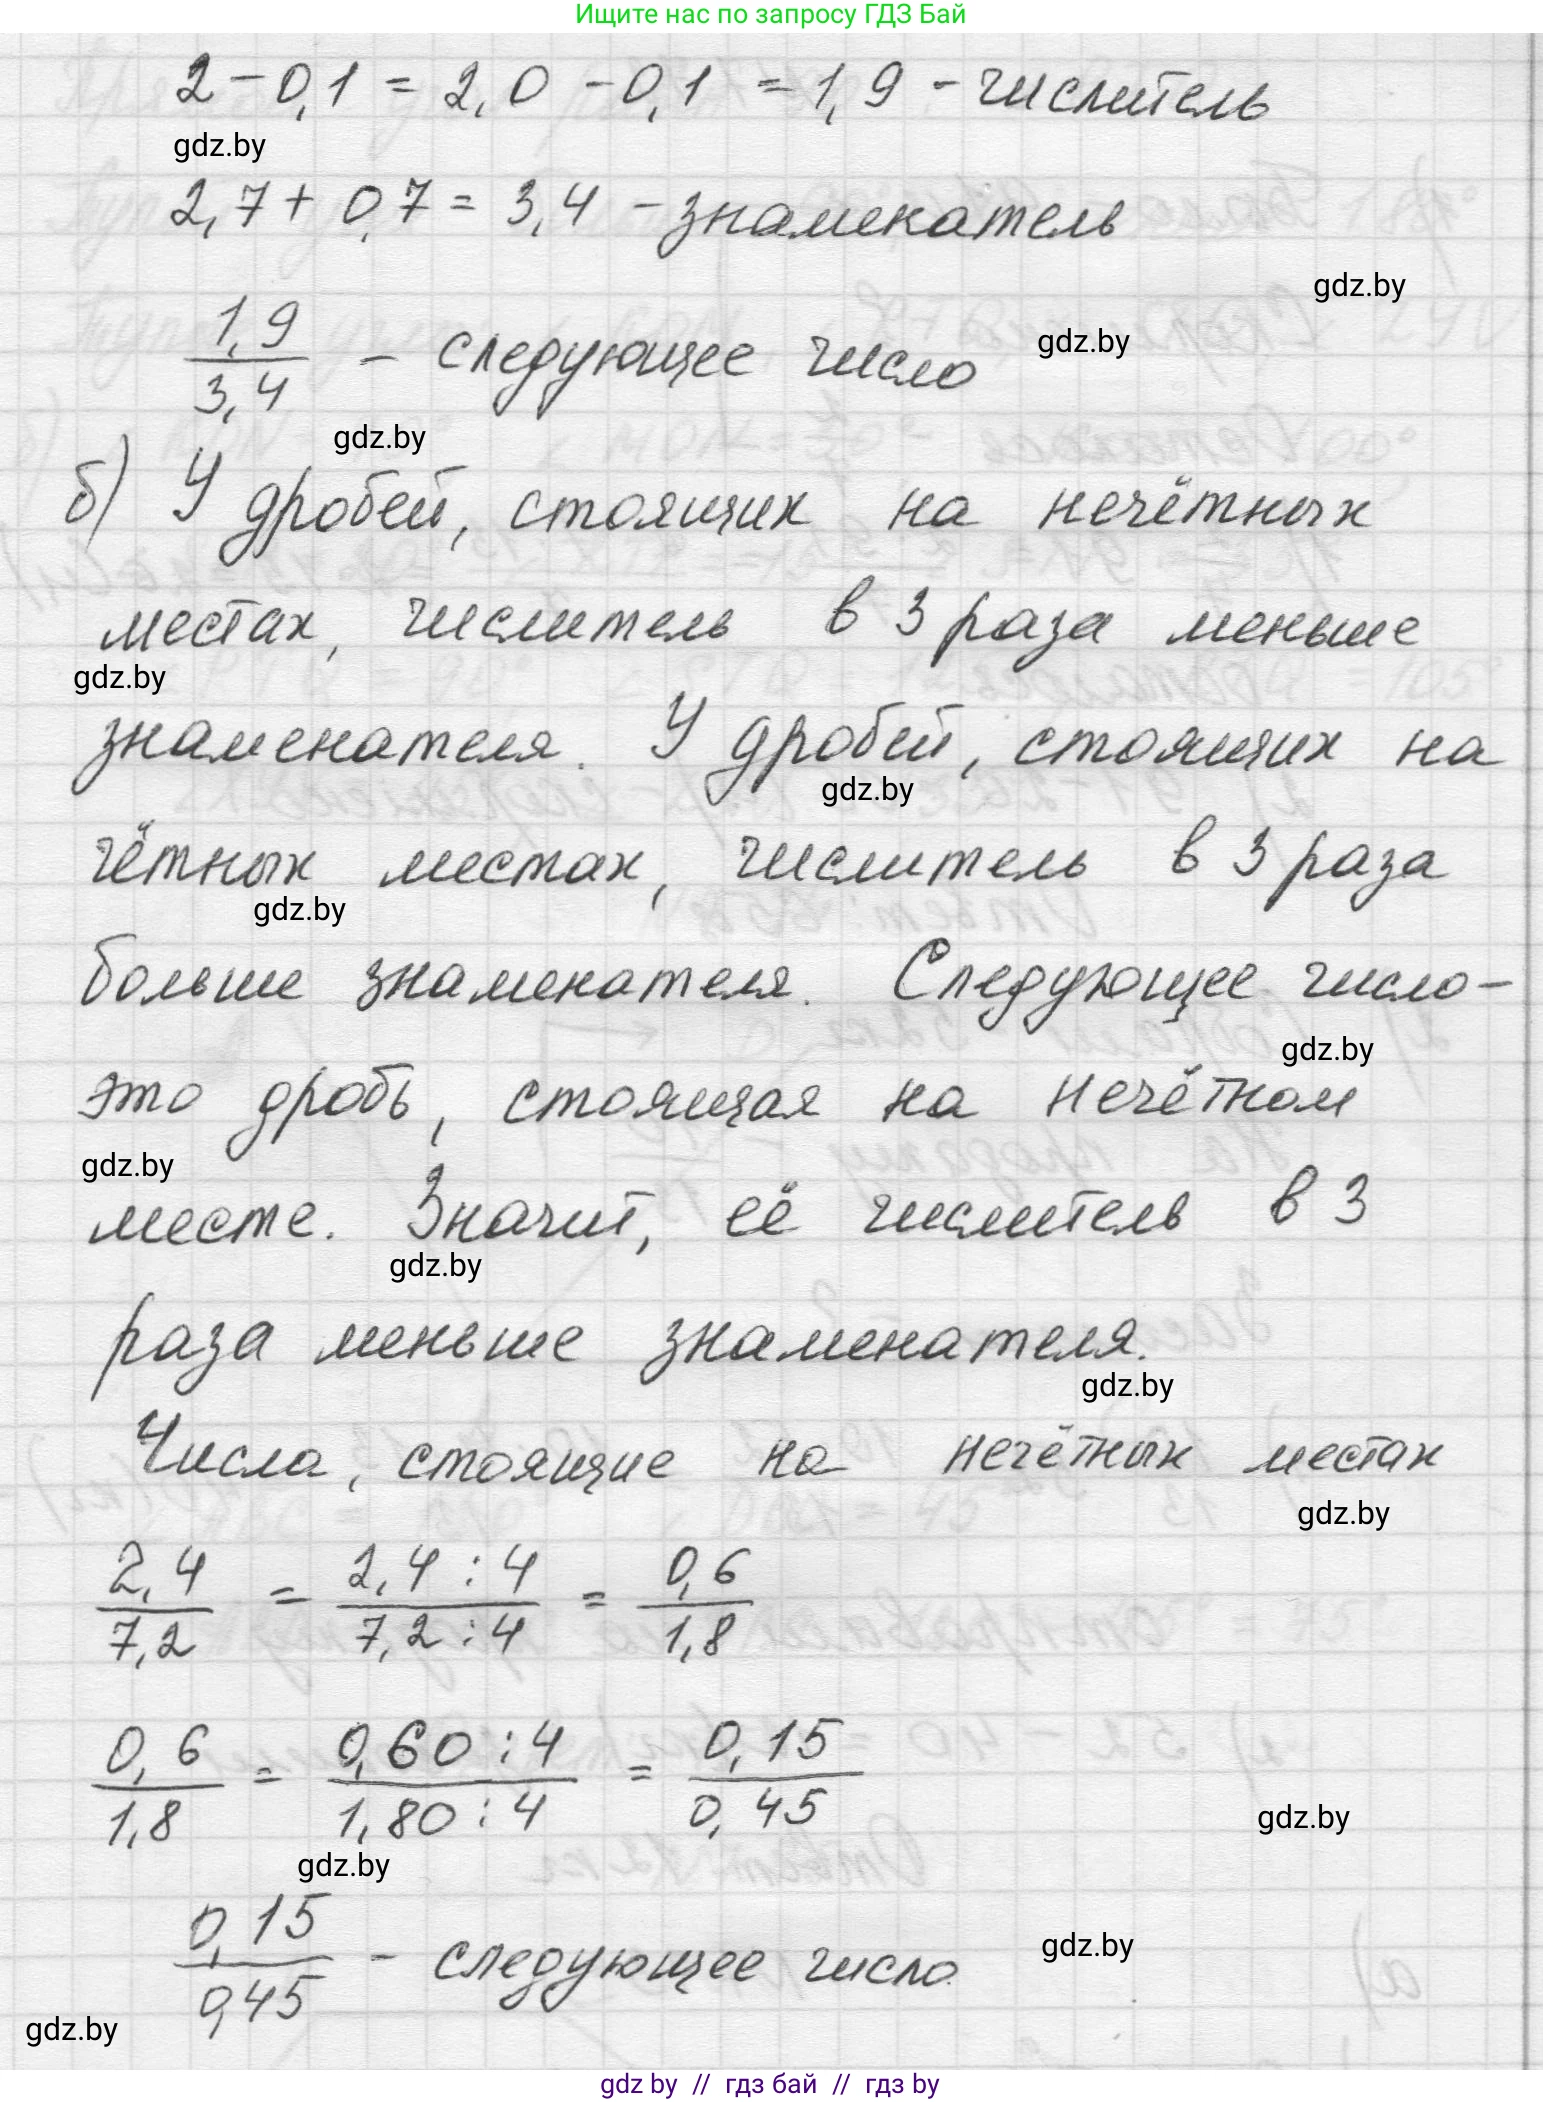 Ищите нас по запросу ГДЗ Бай
2 - 0,1 = 2,0 - 0,1 = 1,9 - числитель
gdz.by
2,7 + 0,7 = 3,4 - знаменатель
gdz.by
1,9/3,4 - следующее число
gdz.by
gdz.by
б) У дробей, стоящих на нечётных
местах, числитель в 3 раза меньше
gdz.by
знаменателя. У дробей, стоящих на
gdz.by
чётных местах, числитель в 3 раза
gdz.by
больше знаменателя. Следующее число-
gdz.by
это дробь, стоящая на нечётном
gdz.by
месте. Значит, её числитель в 3
gdz.by
раза меньше знаменателя.
gdz.by
Числа, стоящие на нечётных местах
gdz.by
2,4/7,2 = 2,4:4/7,2:4 = 0,6/1,8
0,6/1,8 = 0,60:4/1,80:4 = 0,15/0,45
gdz.by
gdz.by
0,15/0,45 - следующее число.
gdz.by
gdz.by
gdz by // гдз бай // гдз by